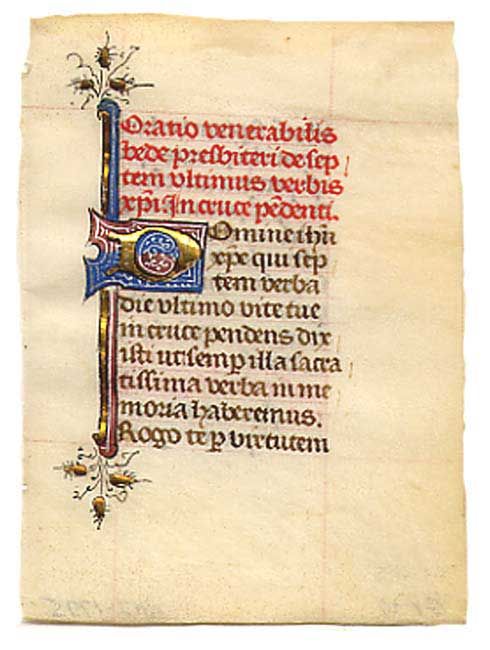 Oratio venerabilis
bede presbiteri de sep
tem ultimus verbis
xp̄i. In cruce pēdenti.
Domine ihū
xp̄e qui sep
tem verba
die ultimo vite tue
in cruce pendens dix
isti ut semp̄ illa sacra
tissima verba in me
moria haberemus.
Rogo te ꝑ virtutem